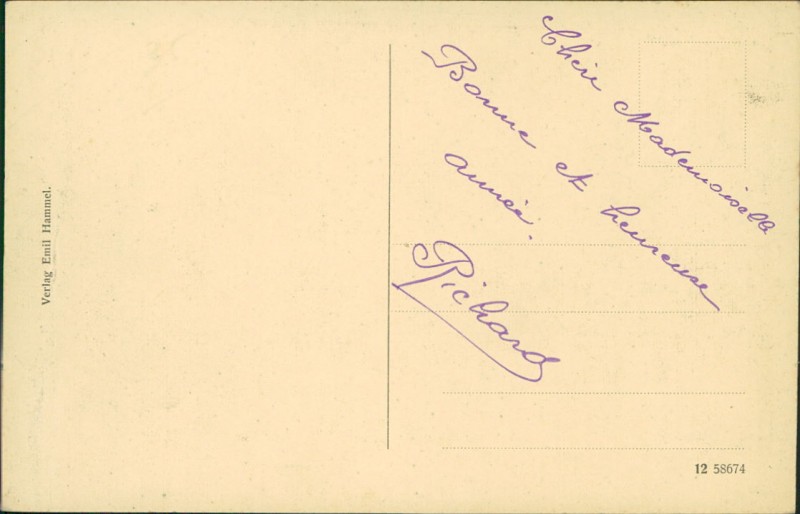 Chère Mademoiselle
Bonne et heureuse
année.
Richard
Verlag Emil Hammel.
12 58674